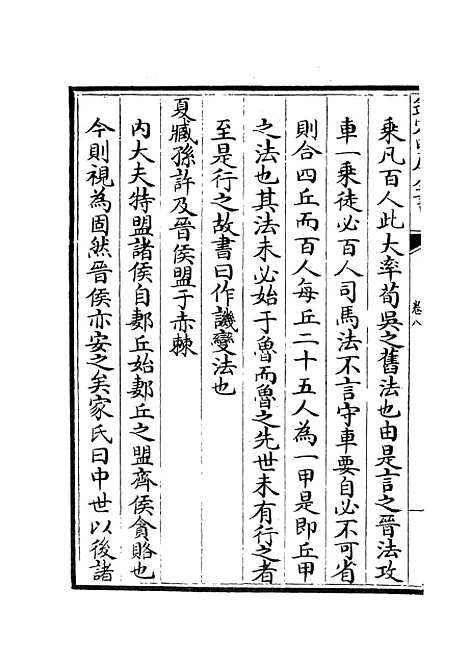 乘凡百人此大率荀吳之舊法也由是言之晉法攻
車一乘徒必百人司馬法不言守車要自必不可省
則合四丘而百人每丘二十五人為一甲是即丘甲
之法也其法未必始于魯而魯之先世未有行之者
至是行之故書曰作譏變法也
夏臧孫許及晉侯盟于赤棘
內大夫特盟諸侯自郪丘始郪丘之盟齊侯貪賂也
今則視為固然晉侯亦安之矣家氏曰中世以後諸
卷八